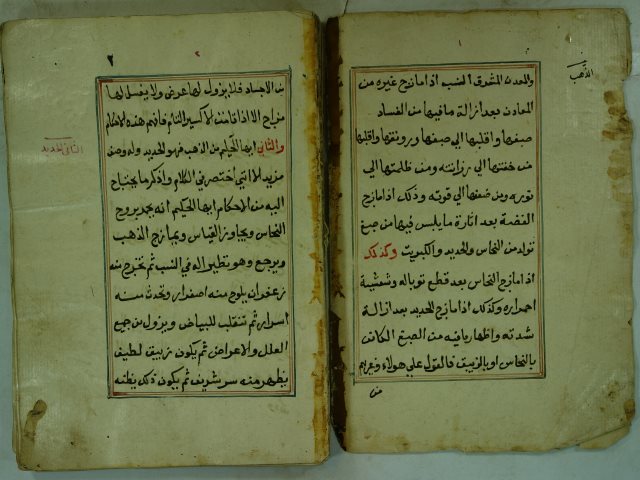 ١
الذهب
والمعدن المشرق النسب اذا مازج غيره من
المعادن بعد ازالة ما فيها من الفساد
صبغها واقلبها الي صبغها ورونقها واقلبها
من خفتها الي رزانته ومن ظلمتها الي
نوره ومن ضعفها الي قوته وذلك اذا مازج
الفضة بعد اثارة ما يلبس فيها من صبغ
تولد من النحاس والحديد والكبريت وكذلك
اذا مازج النحاس بعد قطع توباله وتنقية
احمراره وكذلك اذا مازج الحديد بعد ازالة
شدته واظهار ما فيه من الصبغ الكائن
بالنحاس او بالزيبق فالقول علي هولاء وغيرهم
من
٢
٢
من الاجساد فلا يزول لها عرض ولا يغسل لها
مزاج الا اذا قامت لاكسير التام فافهم هذه الاحكام
والثاني ايها الحكيم من الذهب فهو الحديد وله وصف
مزيد الا اني اختصر في الكلام واذكر ما يحتاج
اليه من الاحكام ايها الحكيم انه يجد بروح
النحاس ويجاوز القياس ويمازج الذهب
ويرجع وهو نظير اله في النسب ثم تخرج منه
زعفران يلوح منه اصفرار وتحدث منه
اسرار ثم تنقلب للبياض ويزول من جميع
العلل والاعراض ثم يكون زيبق لطيف
يظهر منه سر شريف ثم يكون ذلك يظنه
الثاني الحديد